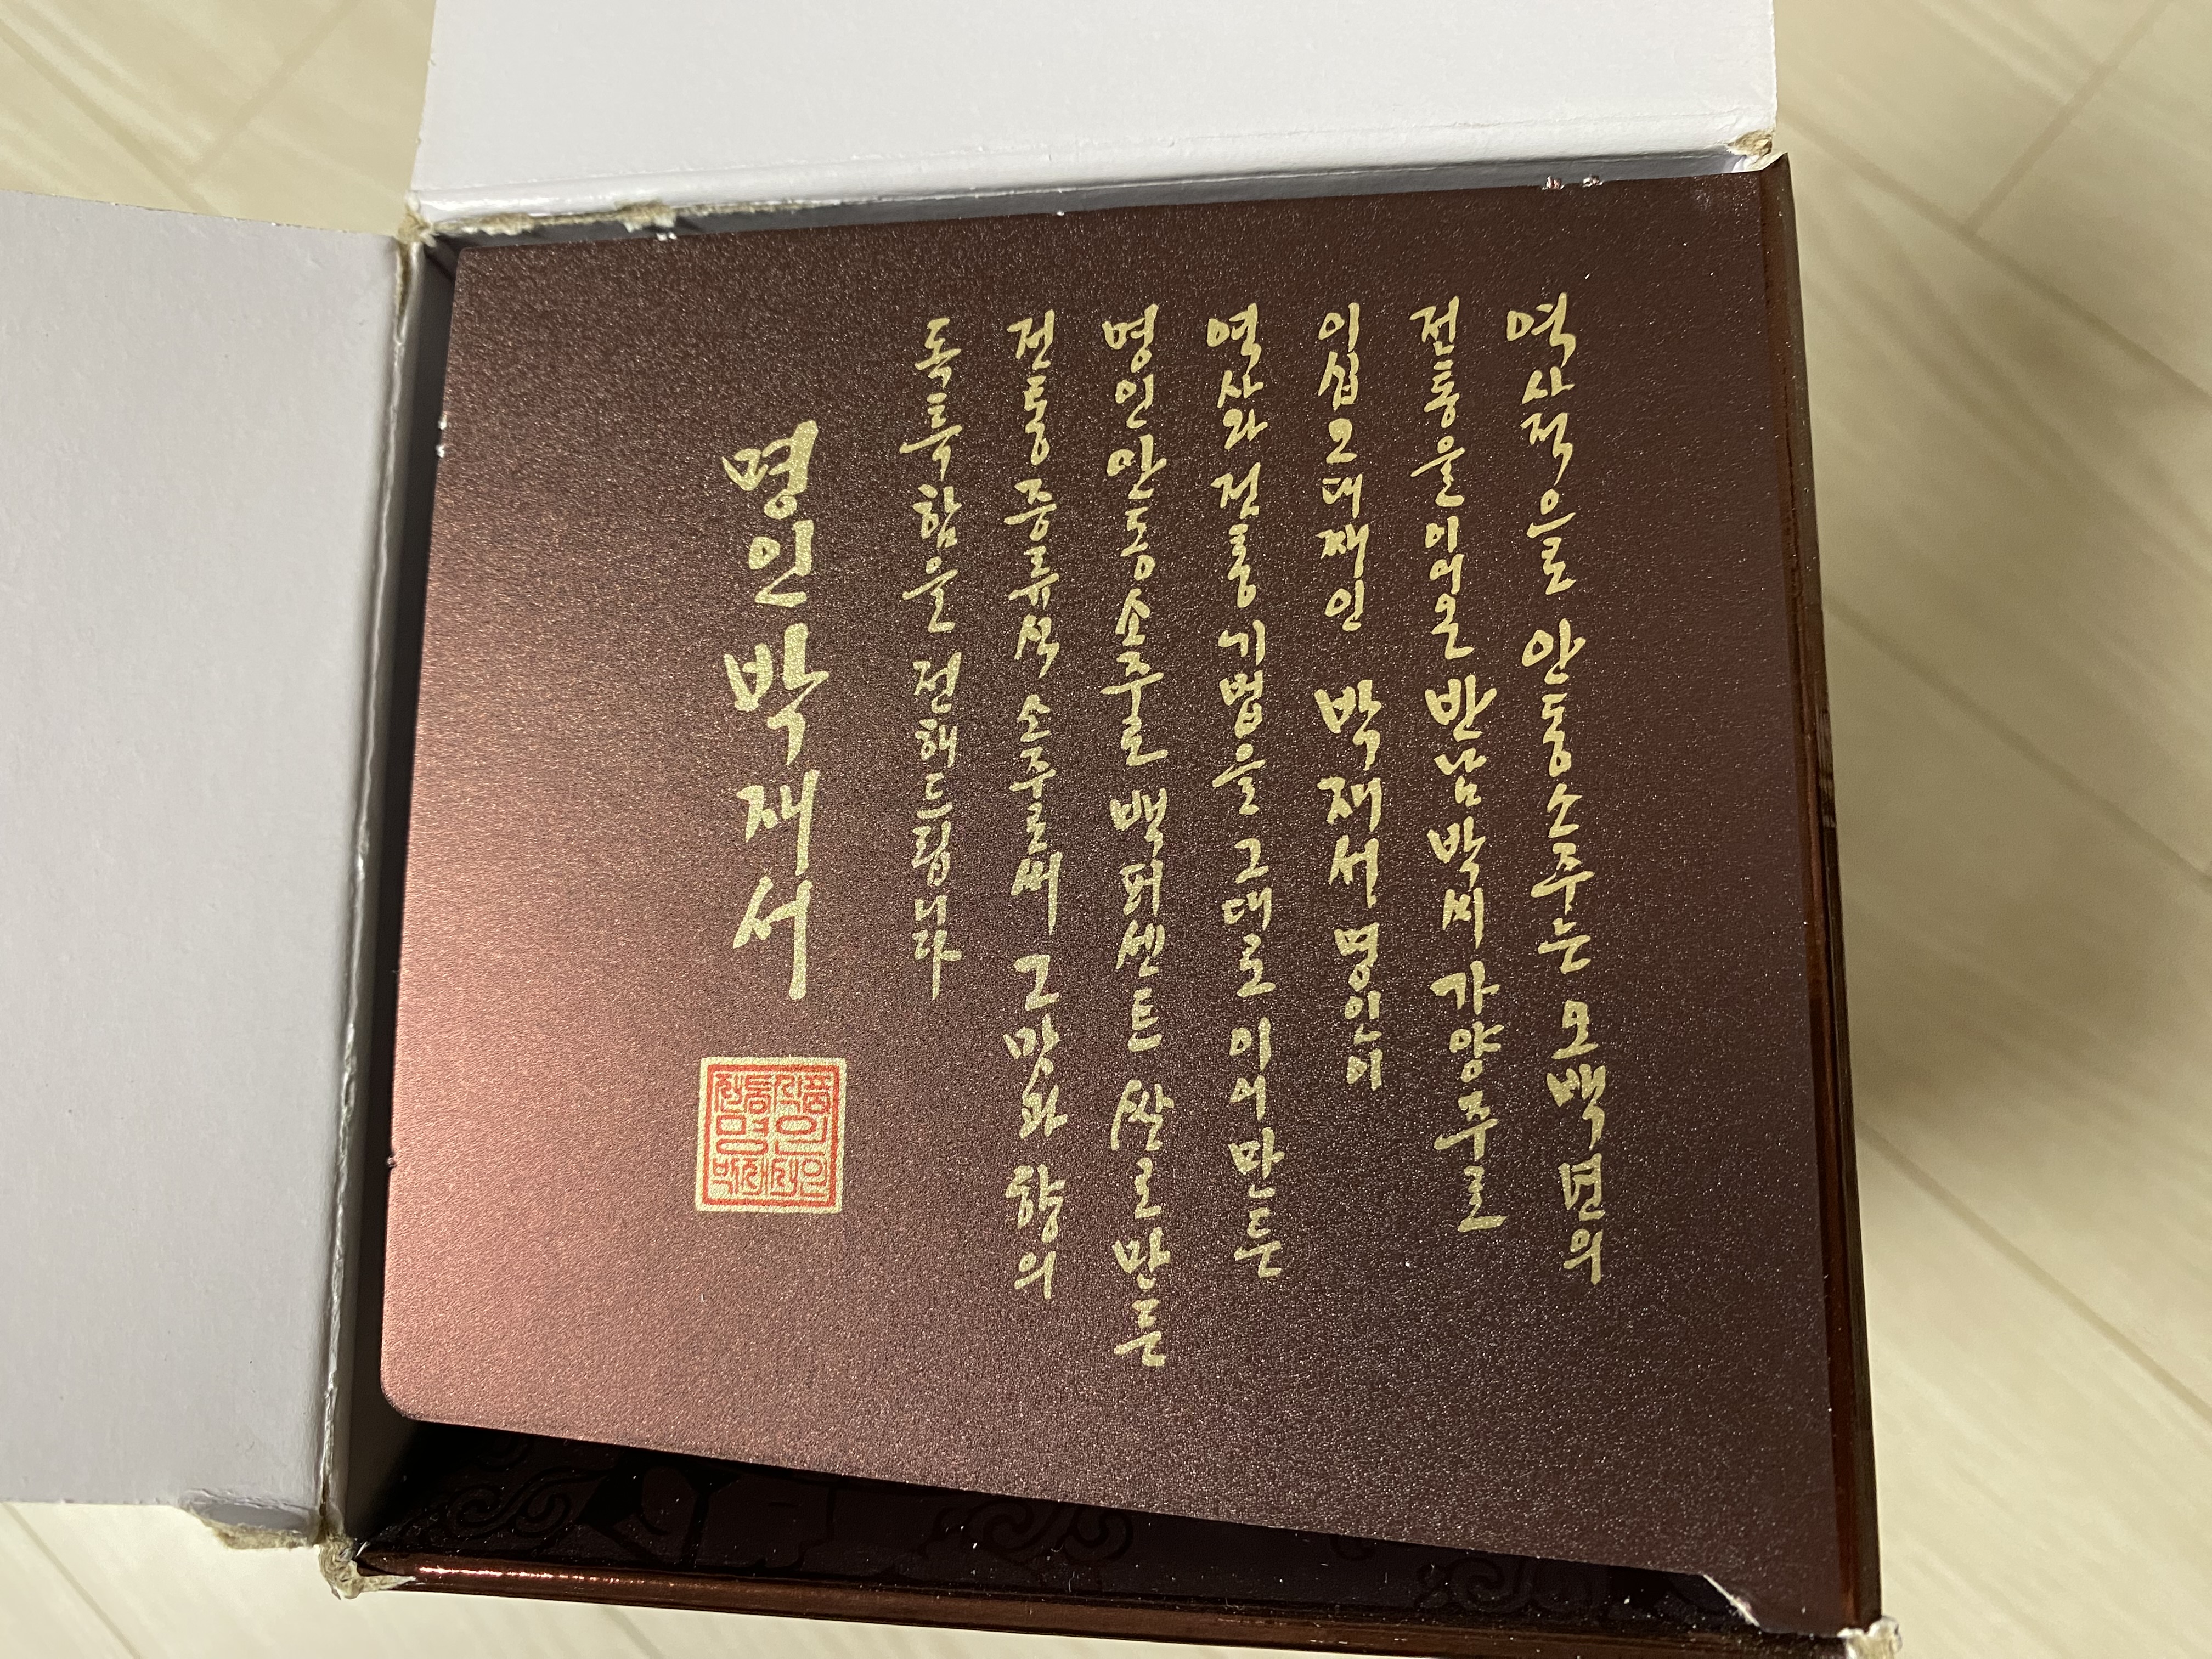 역사적으로 안동소주는 오백년의
전통을 이어온 반남박씨 가양주로
이십오대째인 박재서 명인이
역사와 전통 기법을 그대로 이어 만든
명인안동소주로 백퍼센트 쌀로 만든
전통증류식 소주로써 그 맛과 향의
독특함을 전해드립니다
명인 박재서
전통식품
명인
박재서인